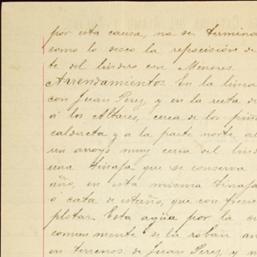 por esta causa, no se termina
como lo deseo la reposición de
te del lindero con Menores.
Arrendamientos En la linea
con Juan Perez y en la recta de
á los Altares, cerca de los
y a la parte norte, al
un arroyo muy cerca del lind
una tinaja que se conserva
año, en esta misma tinaja
o cata de estaño, que con frecu
plotar. Esta agua por la
comunmente se la roban
en terrenos de Juan Perez y